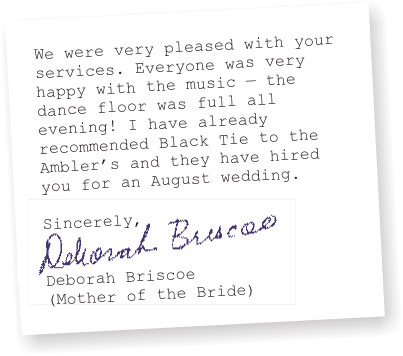 We were very pleased with your
services. Everyone was very
happy with the music — the
dance floor was full all
evening! I have already
recommended Black Tie to the
Ambler's and they have hired
you for an August wedding.
Sincerely,
Deborah Briscoe
Deborah Briscoe
(Mother of the Bride)